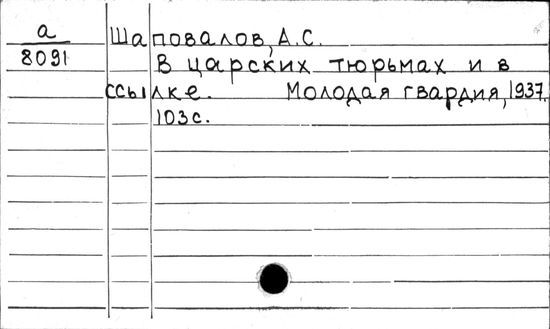 а
8091
Шаповалов, А.С.
В царских тюрьмах и в
ссылке. Молодая гвардия, 1937.
103с.